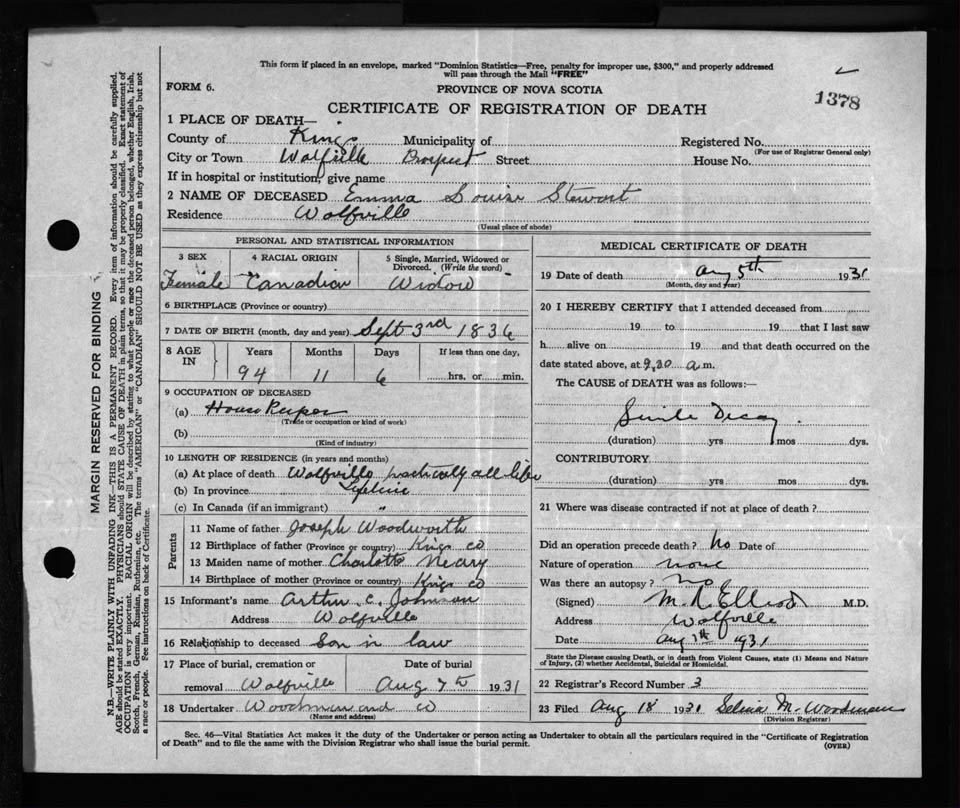 This form if placed in an envelope, marked "Dominion Statistics—Free, penalty for improper use, $300," and properly addressed
will pass through the Mail "FREE"
FORM 6.
PROVINCE OF NOVA SCOTIA
1378
CERTIFICATE OF REGISTRATION OF DEATH
1 PLACE OF DEATH—
County of Kings Municipality of Registered No.
(For use of Registrar General only)
City or Town Wolfville Prospect Street House No.
If in hospital or institution, give name
2 NAME OF DECEASED Emma Louise Stewart
Residence Wolfville
(Usual place of abode)
PERSONAL AND STATISTICAL INFORMATION
3 SEX 4 RACIAL ORIGIN 5 Single, Married, Widowed or Divorced. (Write the word)
Female Canadian Widow
6 BIRTHPLACE (Province or country)
7 DATE OF BIRTH (month, day and year) Sept 3rd 1836
8 AGE IN Years Months Days If less than one day,
94 11 6 hrs. or min.
9 OCCUPATION OF DECEASED
(a) House Keeper
(Trade or occupation or kind of work)
(b)
(Kind of industry)
10 LENGTH OF RESIDENCE (in years and months)
(a) At place of death Wolfville practically all life
(b) In province Lifetime
(c) In Canada (if an immigrant) "
Parents
11 Name of father Joseph Woodworth
12 Birthplace of father (Province or country) Kings Co
13 Maiden name of mother Charlotte Neary
14 Birthplace of mother (Province or country) Kings Co
15 Informant's name Arthur C. Johnson
Address Wolfville
16 Relationship to deceased Son in law
17 Place of burial, cremation or Date of burial
removal Wolfville Aug 7th 1931
18 Undertaker Woodman and Co
(Name and address)
MEDICAL CERTIFICATE OF DEATH
19 Date of death Aug 5th 1931
(Month, day and year)
20 I HEREBY CERTIFY that I attended deceased from
19 to 19 that I last saw
h alive on 19 and that death occurred on the
date stated above, at 9.20 a.m.
The CAUSE of DEATH was as follows:—
Senile Decay
(duration) yrs mos dys.
CONTRIBUTORY
(duration) yrs mos dys.
21 Where was disease contracted if not at place of death?
Did an operation precede death? No Date of
Nature of operation none
Was there an autopsy? No
(Signed) M. R. Elliott M.D.
Address Wolfville
Date Aug 7th 1931
State the Disease causing Death, or in death from Violent Causes, state (1) Means and Nature
of Injury, (2) whether Accidental, Suicidal or Homicidal.
22 Registrar's Record Number 3
23 Filed Aug 18 1931 Selina M. Woodman
(Division Registrar)
Sec. 46—Vital Statistics Act makes it the duty of the Undertaker or person acting as Undertaker to obtain all the particulars required in the "Certificate of Registration
of Death" and to file the same with the Division Registrar who shall issue the burial permit.
(OVER)
MARGIN RESERVED FOR BINDING
N.B.—WRITE PLAINLY WITH UNFADING INK—THIS IS A PERMANENT RECORD. Every item of information should be carefully supplied.
AGE should be stated EXACTLY. PHYSICIANS should STATE CAUSE OF DEATH in plain terms, so that it may be properly classified. Exact statement of
OCCUPATION is very important. RACIAL ORIGIN will be described by stating to what people or race the deceased person belonged, whether English, Irish,
Scotch, French, German, Russian, Ruthenian, etc. The terms "AMERICAN" or "CANADIAN" SHOULD NOT BE USED as they express citizenship but not
a race or people. Fee instructions on back of Certificate.